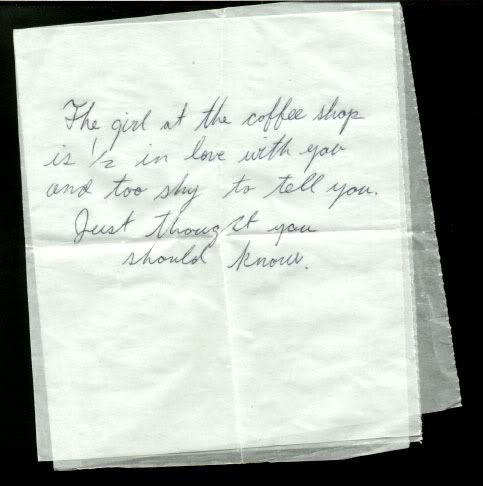 The girl at the coffee shop
is 1/2 in love with you
and too shy to tell you.
Just thought you
should know.